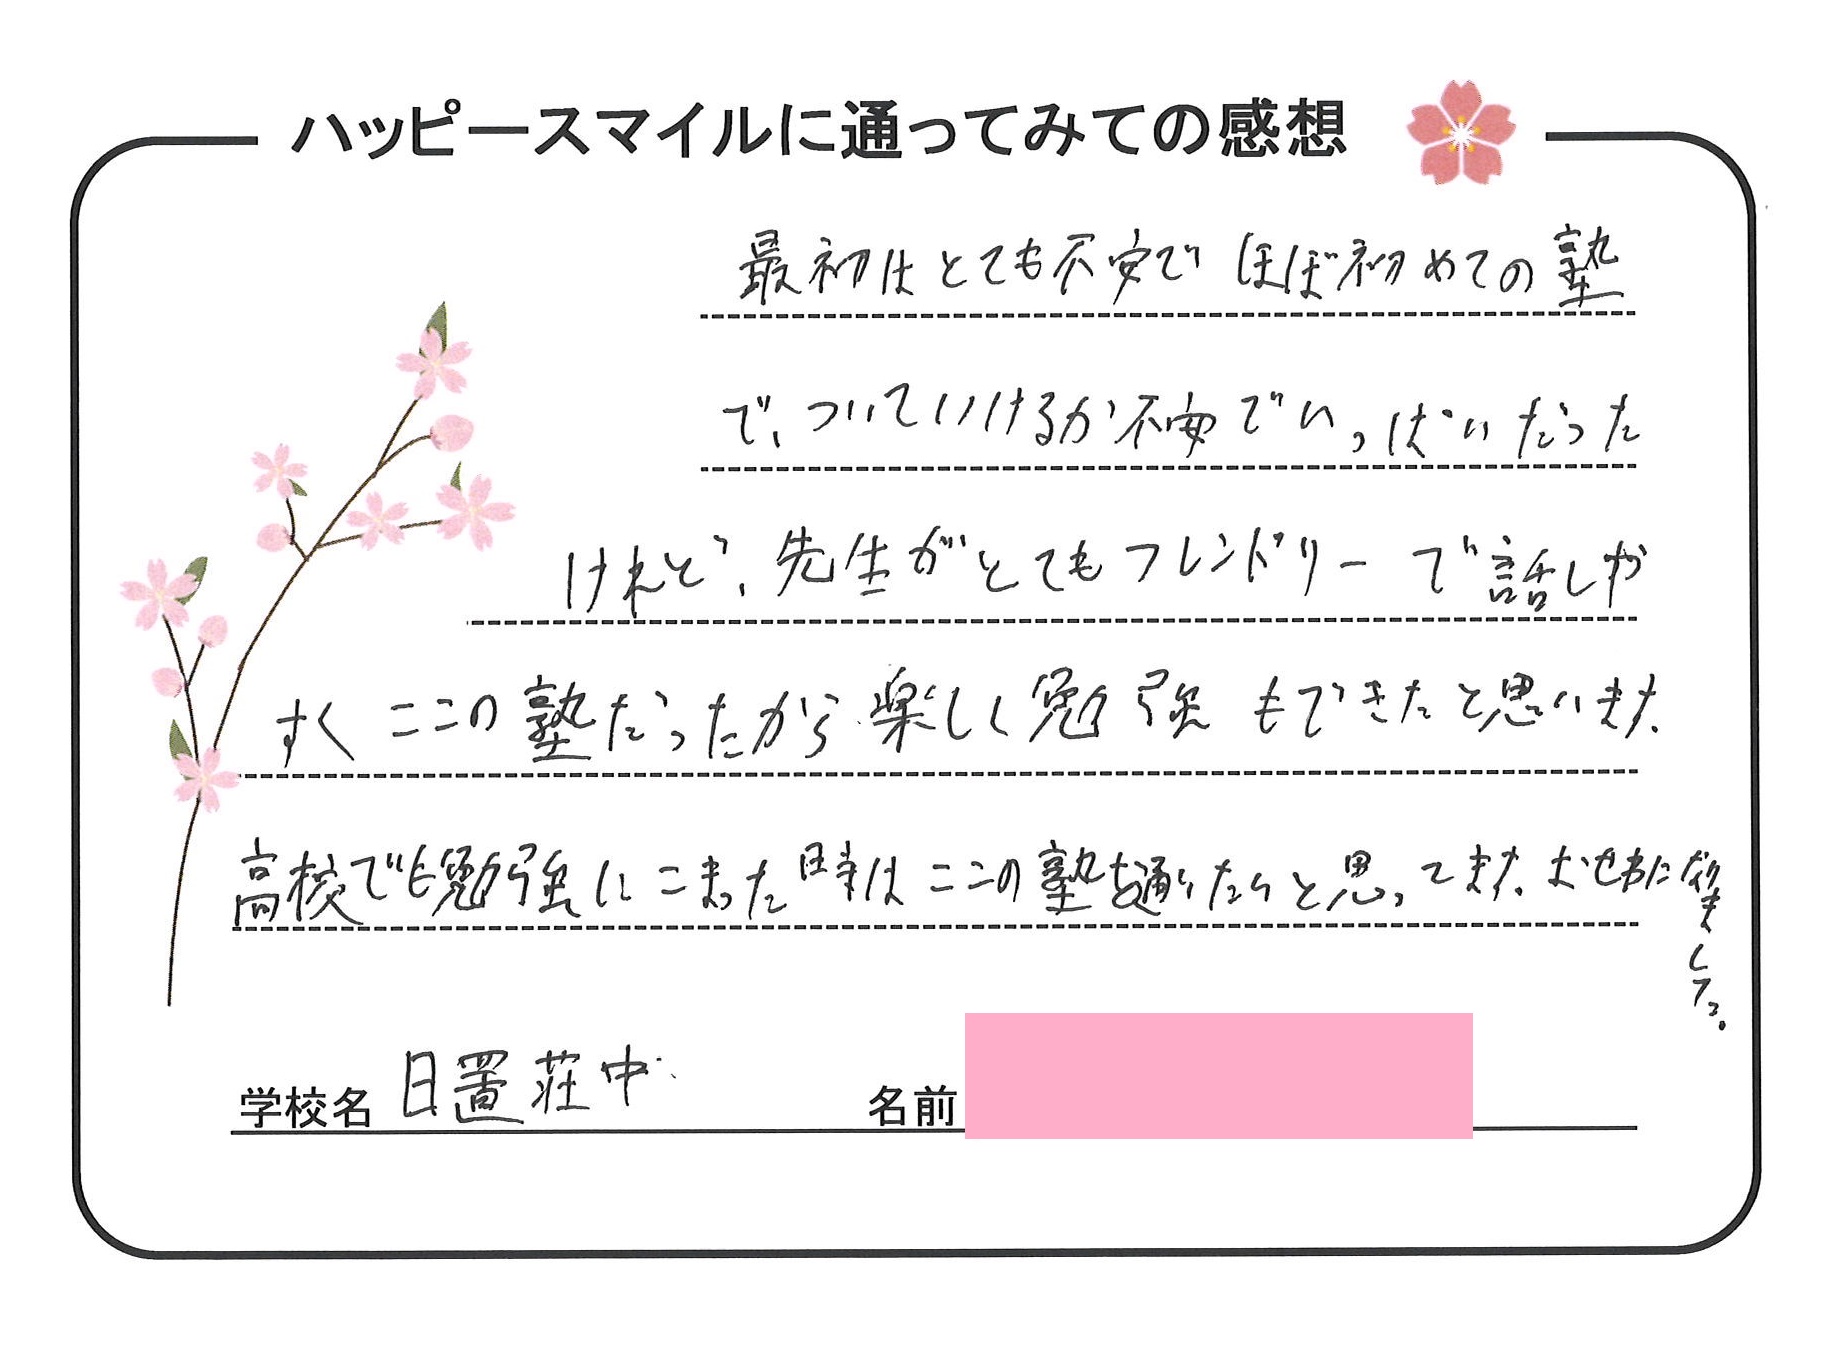 ハッピースマイルに通ってみての感想
最初はとても不安で ほぼ初めての塾
で、ついていけるか不安でいっぱいだった
けれど、先生がとてもフレンドリーで話しや
すく ここの塾だったから楽しく勉強もできたと思います。
高校でも勉強にこまった時は ここの塾を通いたいと思ってます。おせわに
なりました。
学校名 日置荘中
名前